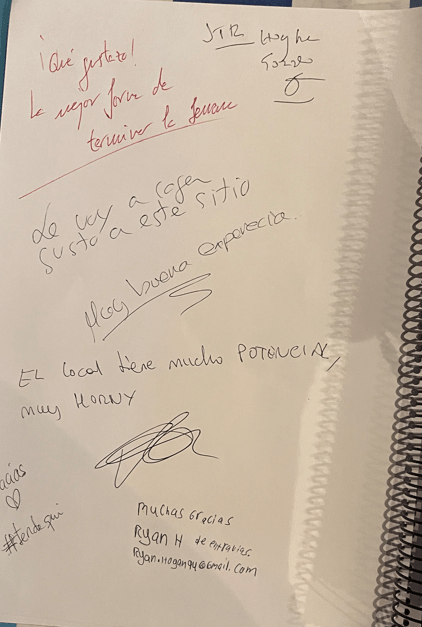 ¡Qué gustazo!
La mejor forma de
terminar la semana
Le voy a coger
gusto a este sitio
Muy buena experiencia.
EL local tiene mucho POTONCIAL,
muy HORNY
#tendaqui
Muchas Gracias
Ryan H de entravias.
Ryan.hogan94@gmail.com